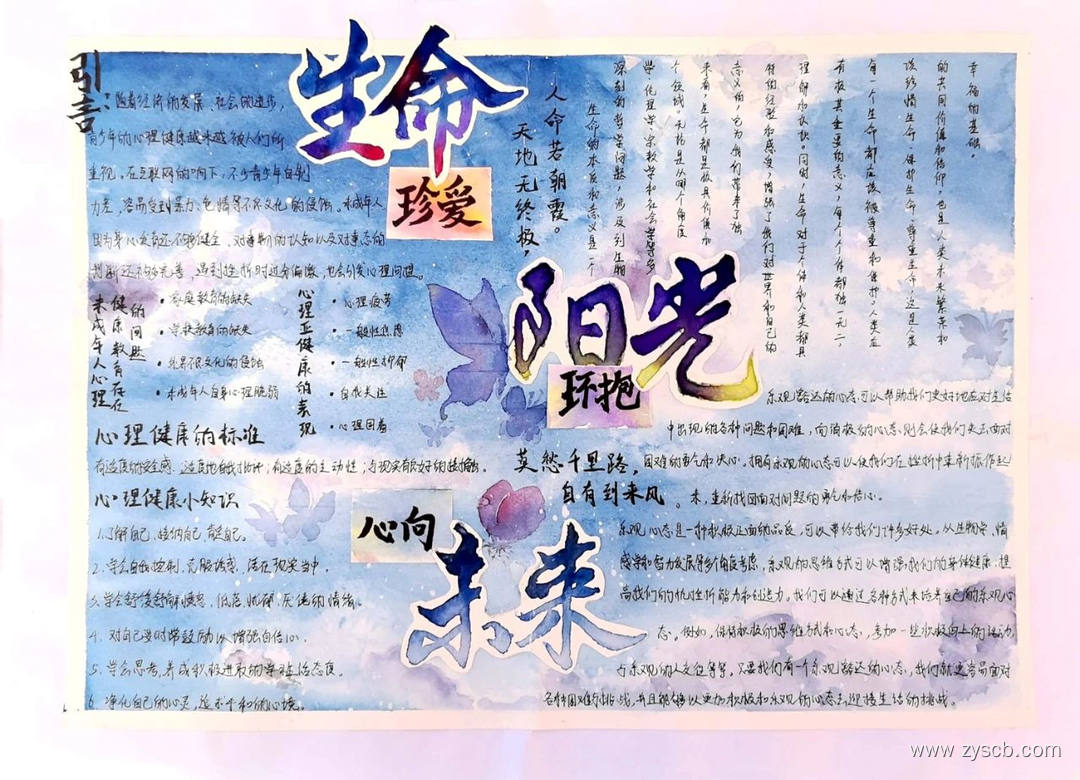 引言：随着经济的发展、社会的进步，
青少年的心理健康越来越被人们所
重视。在互联网的影响下，不少青少年自制
力差，容易受到暴力、色情等不良文化的侵蚀。未成年人
因为身心发育还不够健全，对事物的认知以及对事态的
判断还不够完善，遇到挫折时过分偏激，也会引发心理问题。
生命
珍爱
人命若朝霞。
天地无终极，
阳光
环抱
莫愁千里路，
自有到来风。
心向
未来
未成年人心理
健康教育存在
的问题
·家庭教育的缺失
·学校教育的缺失
·外界不良文化的侵蚀
·未成年人自身心理脆弱
心理亚健康的表现
·心理疲劳
·一般性焦虑
·一般性抑郁
·自我关注
·心理困惑
心理健康的标准
有适度的安全感；适度地自我批评；有适度的主动性；与现实有良好的接触
心理健康小知识
1.了解自己，接纳自己，
2.学会自我控制，克服诱惑，活在现实当中。
3.学会舒缓
4.对自己要时常鼓励以增强自信心。
5.学会思考，养成积极进取的学习生活态度。
6.净化自己的心灵，
生命的本质和意义是一个
深刻的哲学问题，涉及到生物
学、伦理学、宗教学和社会学等多
个领域。无论是从哪个角度
来看，生命都是极具价值和
意义的，它为我们带来了独
特的经验和感受，增强了我们对世界和自己的
理解和认识。同时，生命对于个体和人类都具
有极其重要的意义，每个人个体都独一无二，
每一个生命都应该被尊重和保护，人类应
该珍惜生命、保护生命、尊重生命，这是人类
的共同价值和信仰，也是人类未来繁荣和
幸福的基础。
乐观豁达的心态可以帮助我们更好地应对生活
中出现的各种问题和困难，而消极的心态则会使我们失去面对
困难的勇气和决心。拥有乐观的心态可以使我们在挫折中重新振作起
来，重新找回面对问题的勇气和信心。
乐观心态是一种积极正面的品质，可以带给我们许多好处。从生物学、情
感学和智力发展等多个角度考虑，乐观的思维方式可以增强我们的身体健康、提
高我们的抗挫折能力和创造力。我们可以通过各种方式来培养自己的乐观心
态。例如，保持积极的思维方式和心态，参加一些积极向上的活动，
与乐观的人交往等等。只要我们有一个乐观豁达的心态，我们就更容易面对
各种困难和挑战，并且能够以更加积极和乐观的心态去迎接生活的挑战。
www.zyscb.com